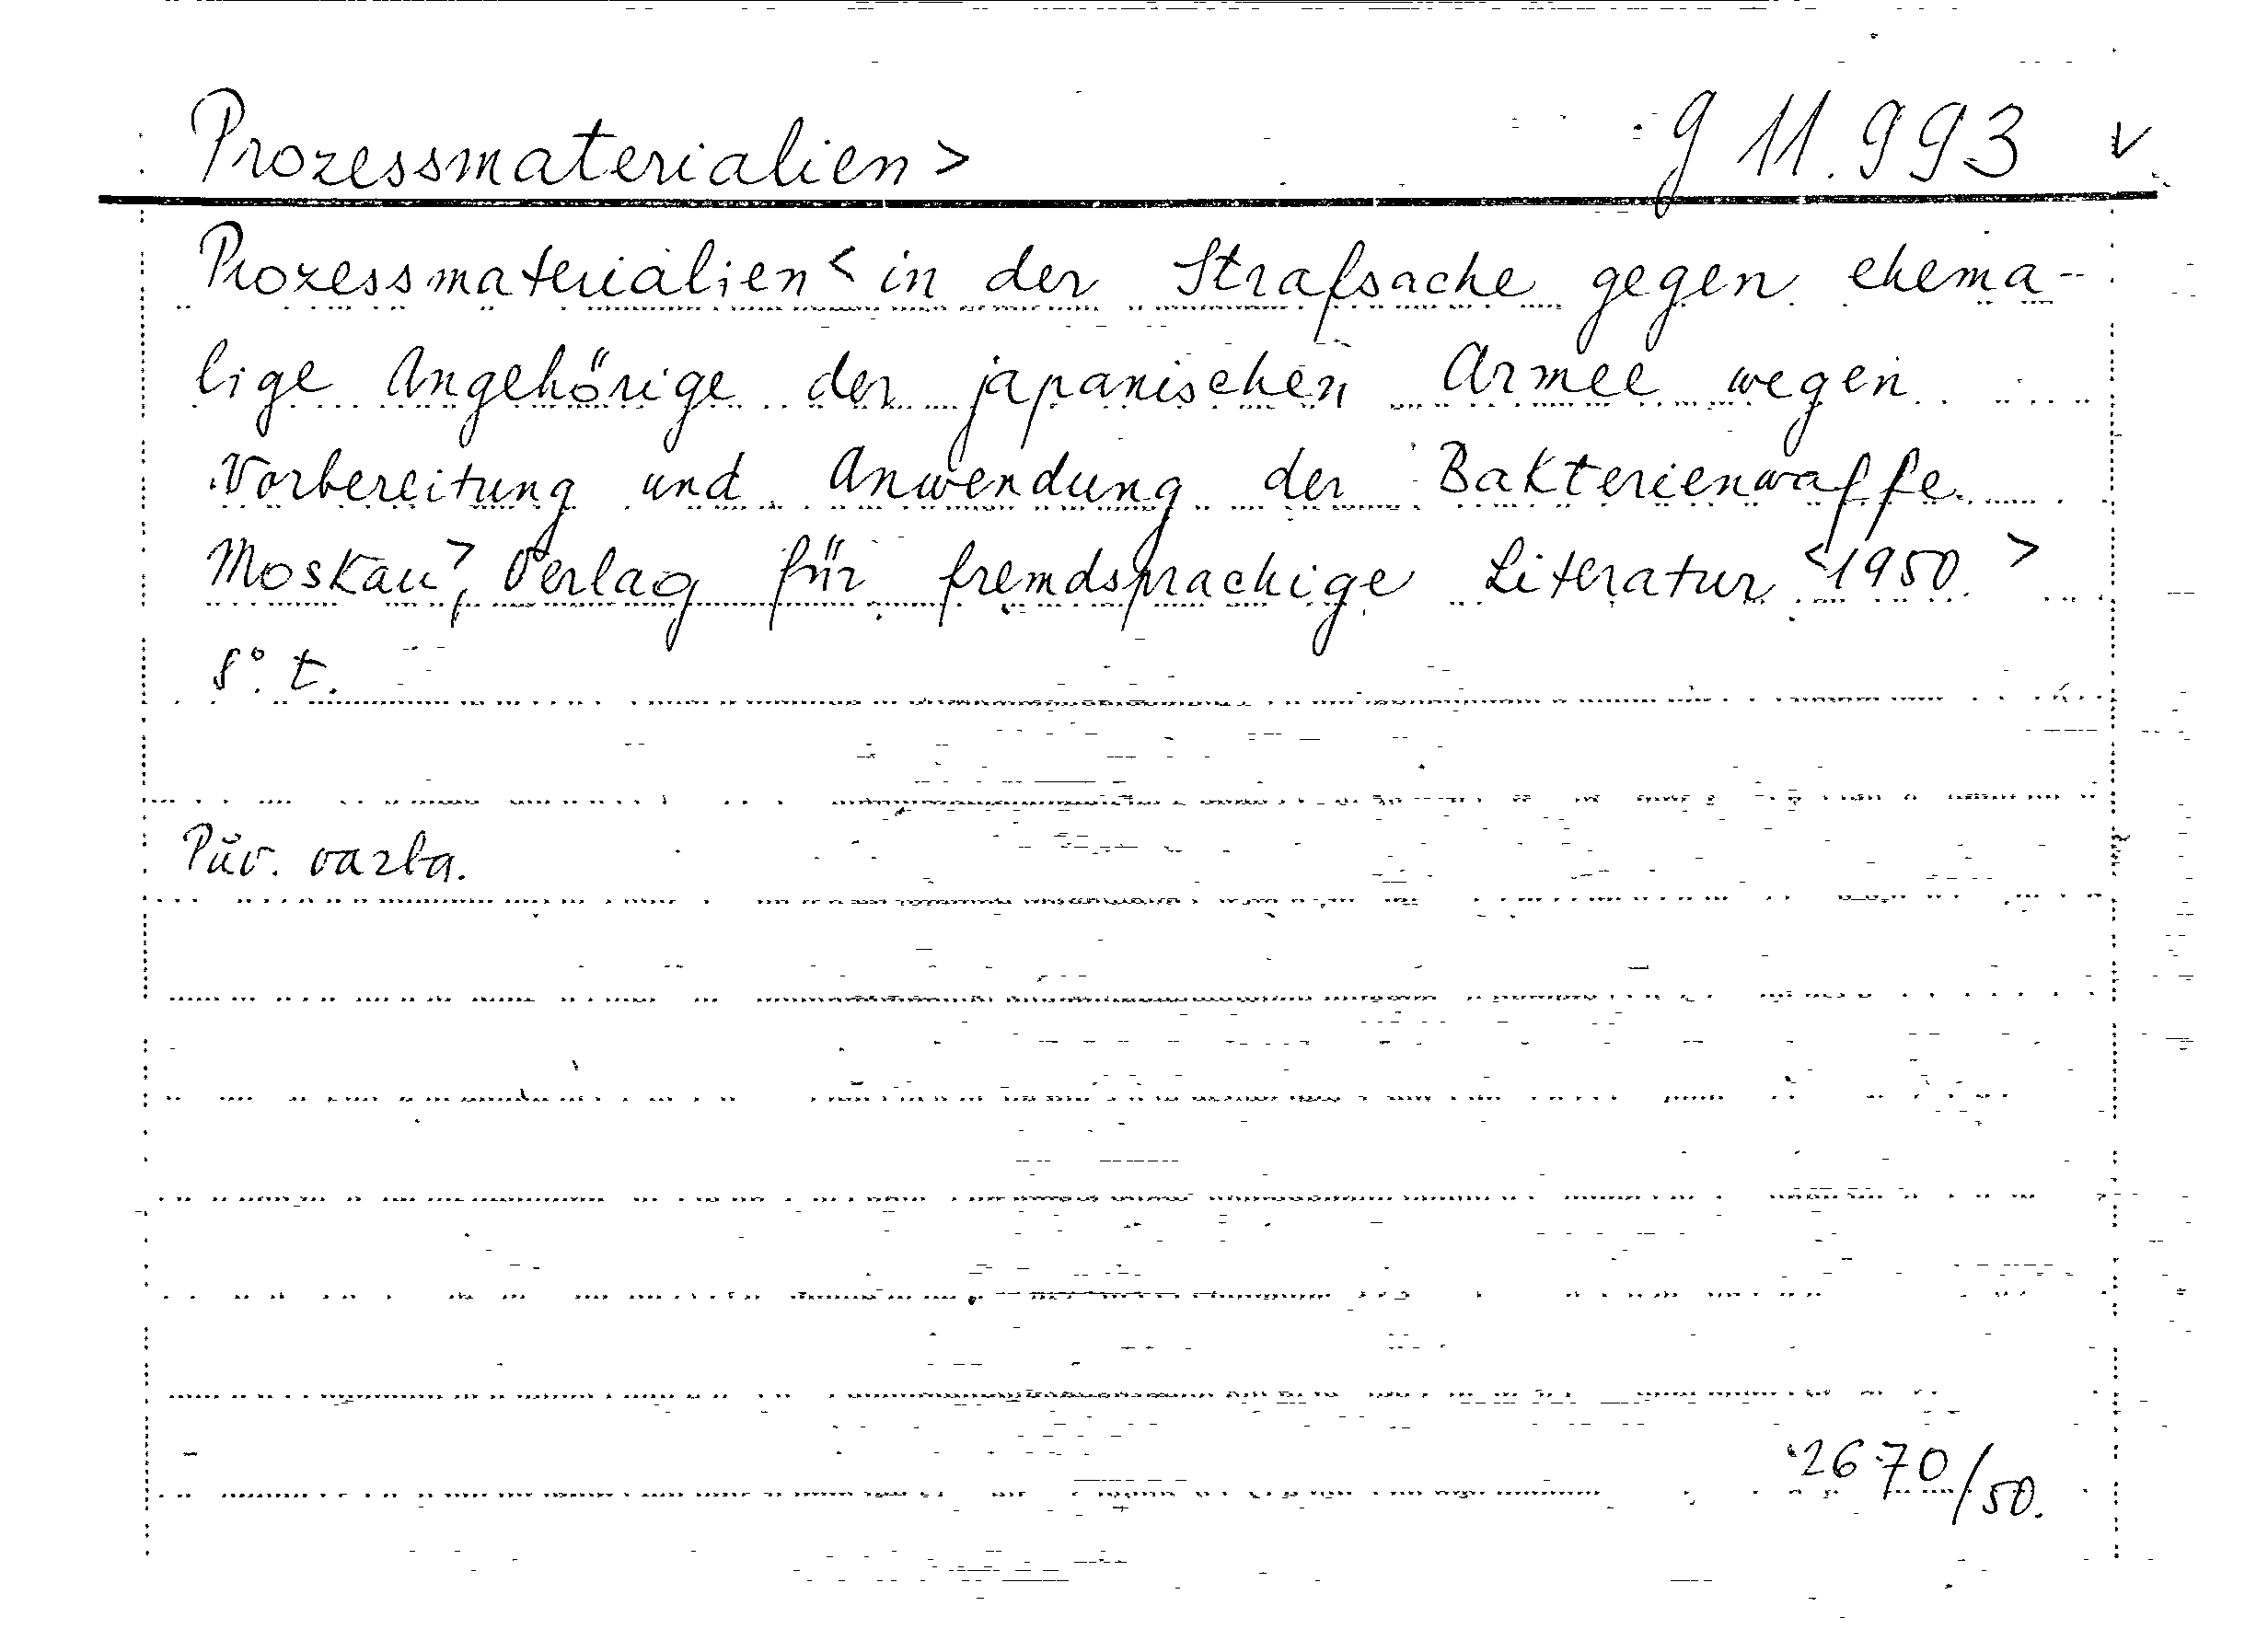 Prozessmaterialien> g 11.993 v
Prozessmaterialien< in der Strafsache gegen ehema-
lige Angehörige der japanischen Armee wegen
Vorbereitung und Anwendung der Bakterienwaffe.
Moskau>, Verlag für fremdsprachige Literatur <1950.>
8°. t.
Pův. vazba.
2670/50.